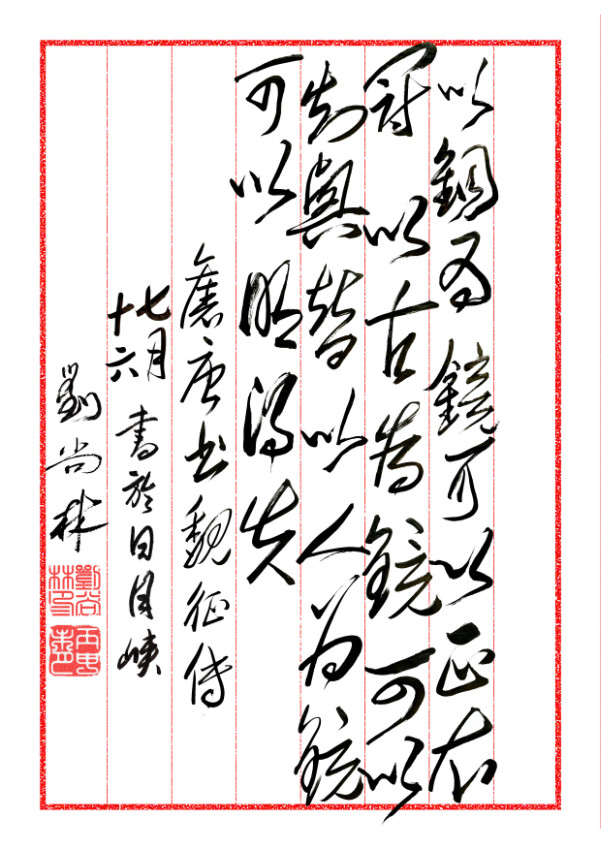 以銅為鏡可以正衣
冠以古為鏡可以
知興替以人為鏡
可以明得失
舊唐书魏征传
七月
十六
書於日月峡
劉尚林